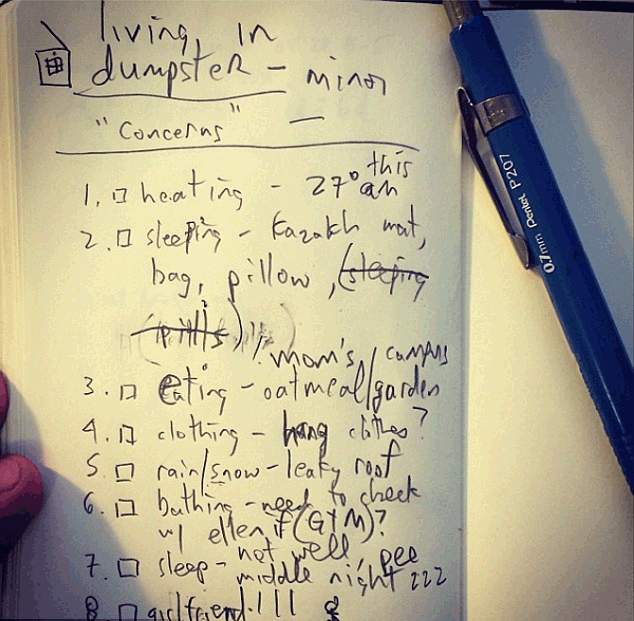 living in
dumpster - minor
"Concerns" —
1. heating - 27° this am
2. sleeping - Kazakh mat,
bag, pillow, (sleeping
(pills)
mom's / campus
3. eating - oatmeal/garden
4. clothing - hang clothes?
5. rain/snow - leaky roof
6. bathing - need to check
w/ ellen if (GYM)?
7. sleep - not well, pee
middle night zzz
8. girlfriend!!!
0.7mm Pentel P207